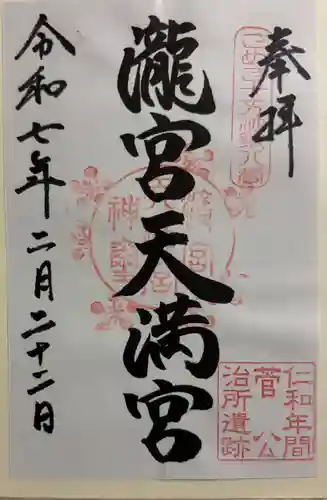 奉拝
瀧宮天満宮
令和七年二月二十二日
仁和年間
菅公
治所遺跡